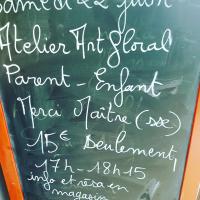 Samedi 22 juin
Atelier Art floral
Parent - Enfant
Merci Maître (sse)
15€ seulement,
17h - 18h15
info et résa en
magasin